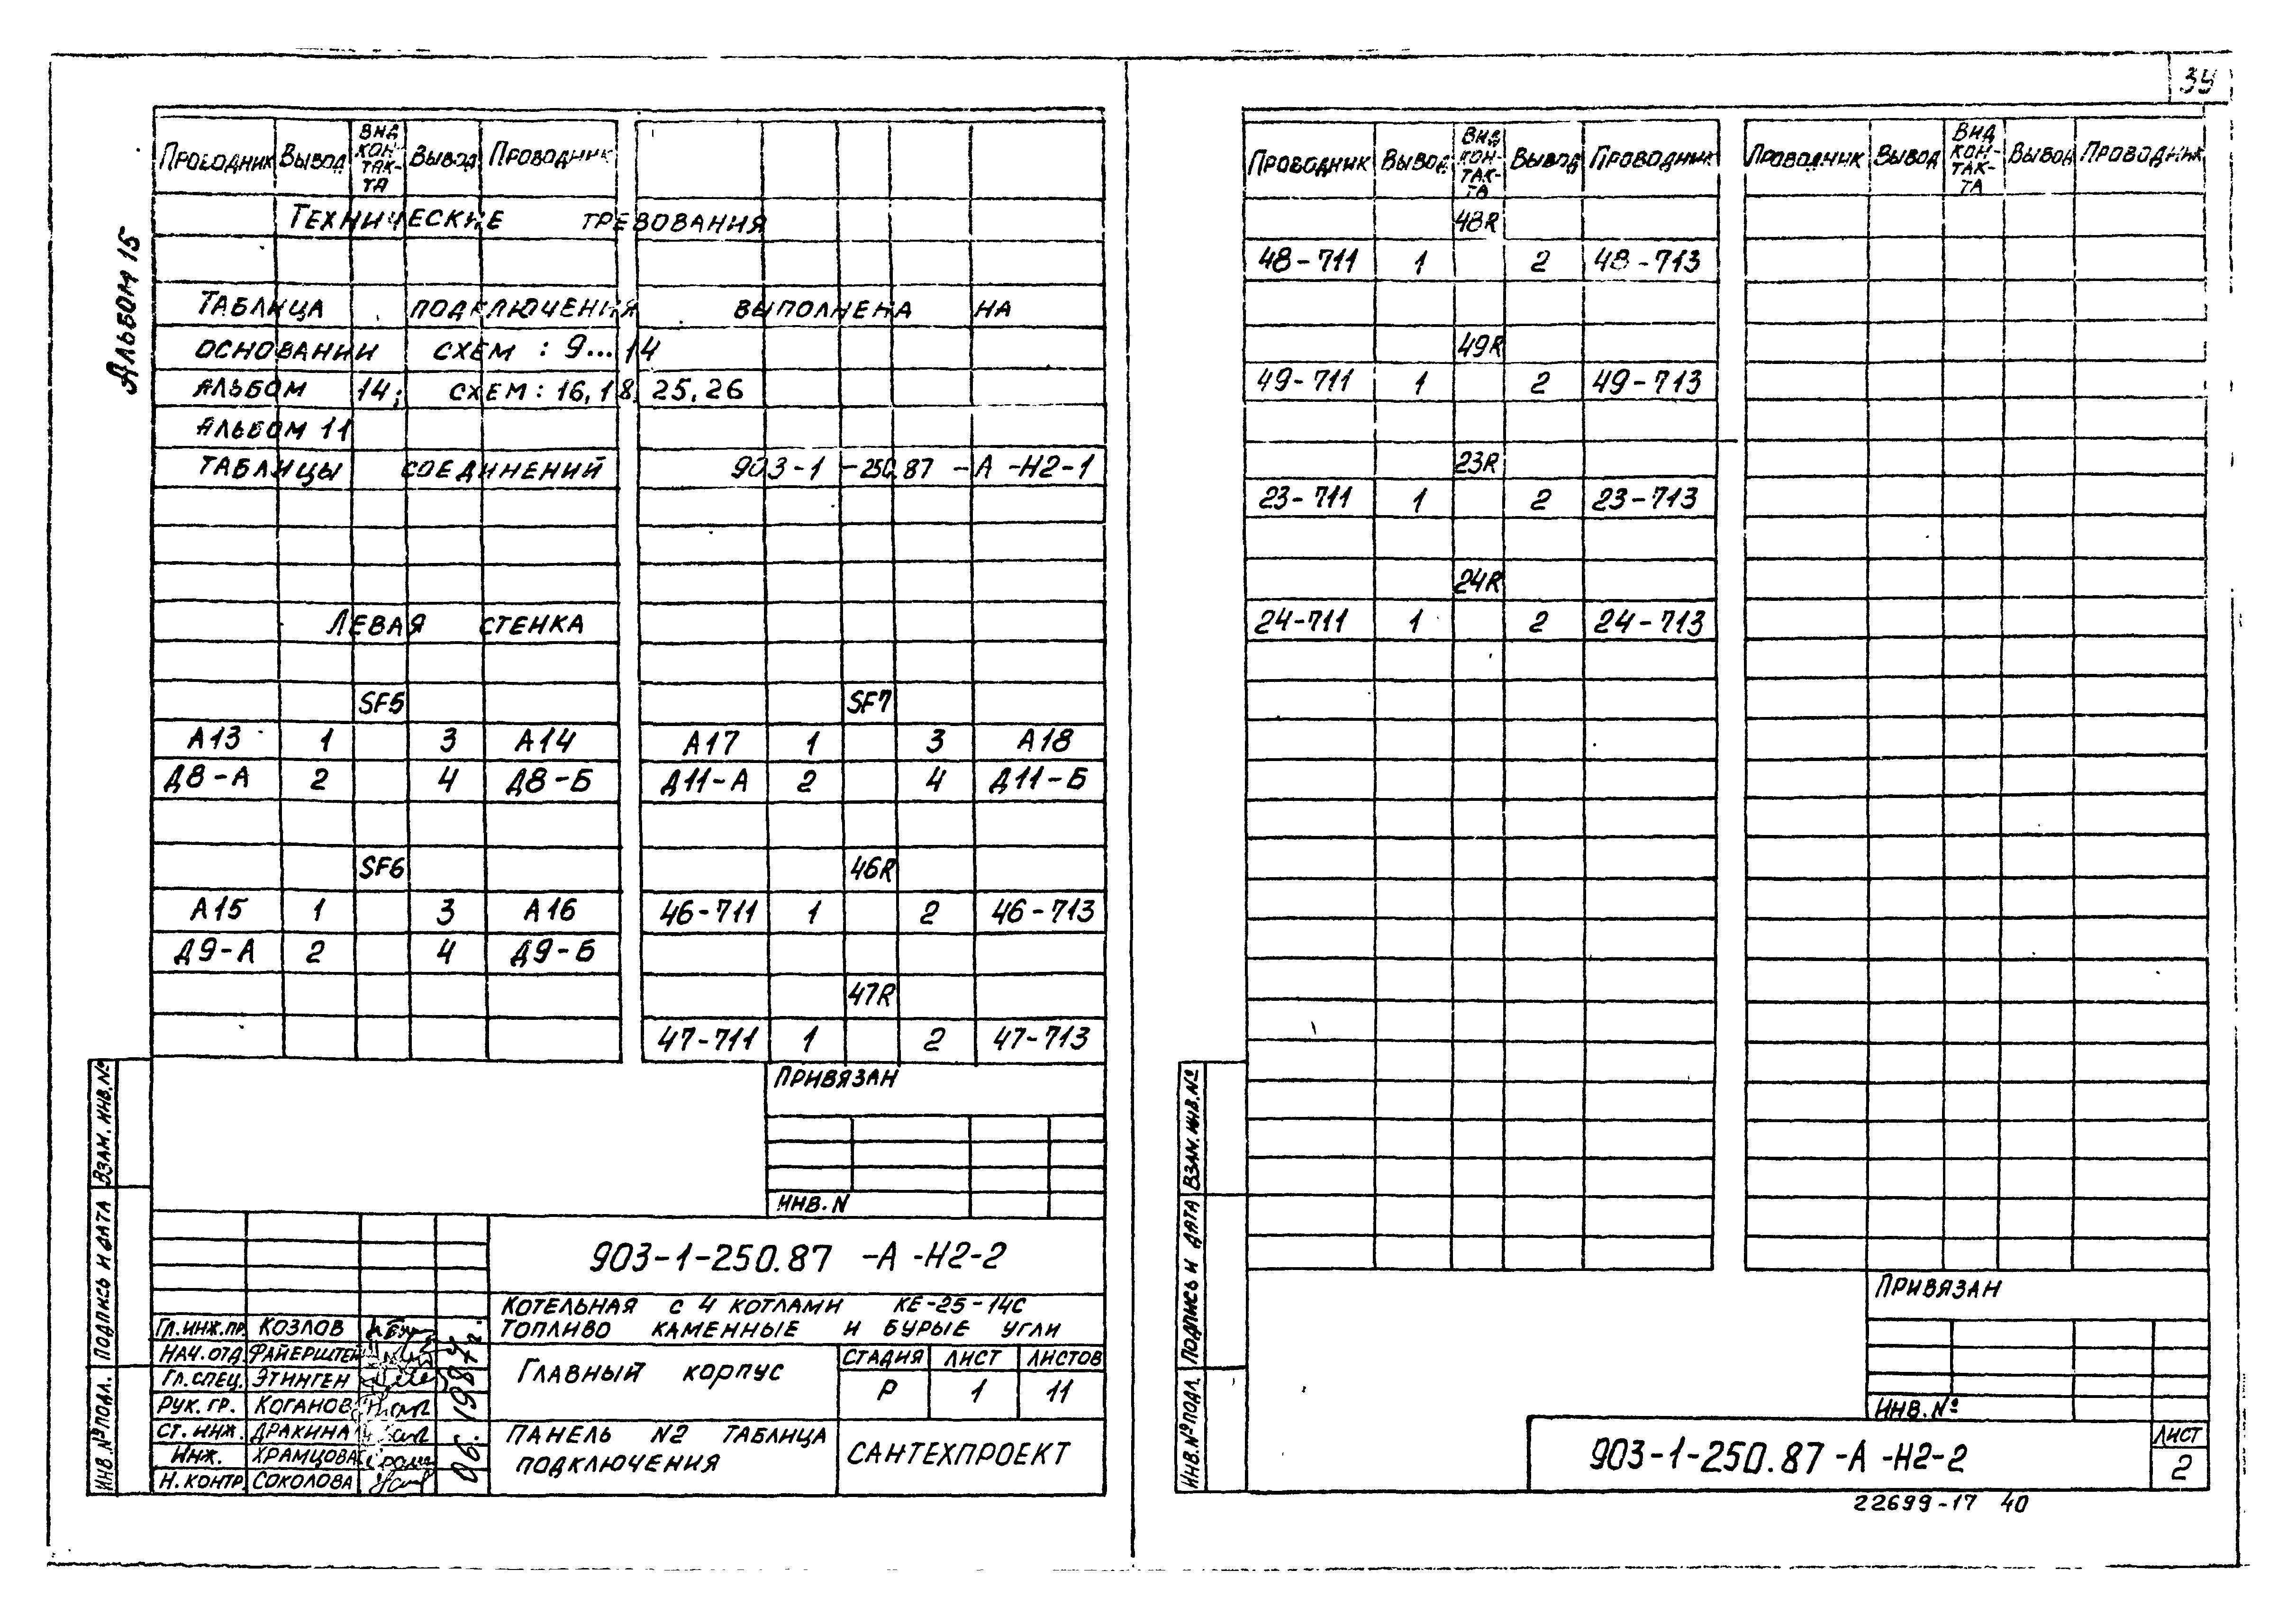 39
Альбом 15
Проводник Вывод Вид контакта Вывод Проводник
Технические требования
Таблица подключения выполнена на
основании схем : 9...14
альбом 14; схем : 16, 18, 25, 26
альбом 11
таблицы соединений 903-1-250.87-А-Н2-1
Левая стенка
SF5
А13 1 3 А14
Д8-А 2 4 Д8-Б
SF6
А15 1 3 А16
Д9-А 2 4 Д9-Б
SF7
А17 1 3 А18
Д11-А 2 4 Д11-Б
46R
46-711 1 2 46-713
47R
47-711 1 2 47-713
Привязан
Инв. N
903-1-250.87 -А -Н2-2
Котельная с 4 котлами КЕ-25-14С
топливо каменные и бурые угли
Гл.инж.пр. Козлов
Нач.отд Файерштейн
Гл.спец. Этинген
Рук. гр. Коганов
Ст. инж. Дракина
Инж. Храмцова
Н.контр. Соколова
06.1987г.
Главный корпус
Стадия Лист Листов
Р 1 11
Панель №2 таблица
подключения
Сантехпроект
Инв.№подл. Подпись и дата Взам.инв.№
Проводник Вывод Вид контакта Вывод Проводник
48R
48-711 1 2 48-713
49R
49-711 1 2 49-713
23R
23-711 1 2 23-713
24R
24-711 1 2 24-713
Проводник Вывод Вид контакта Вывод Проводник
Привязан
Инв. №
Инв.№подл. Подпись и дата Взам.инв.№
903-1-250.87 -А -Н2-2
Лист
2
22699-17 40